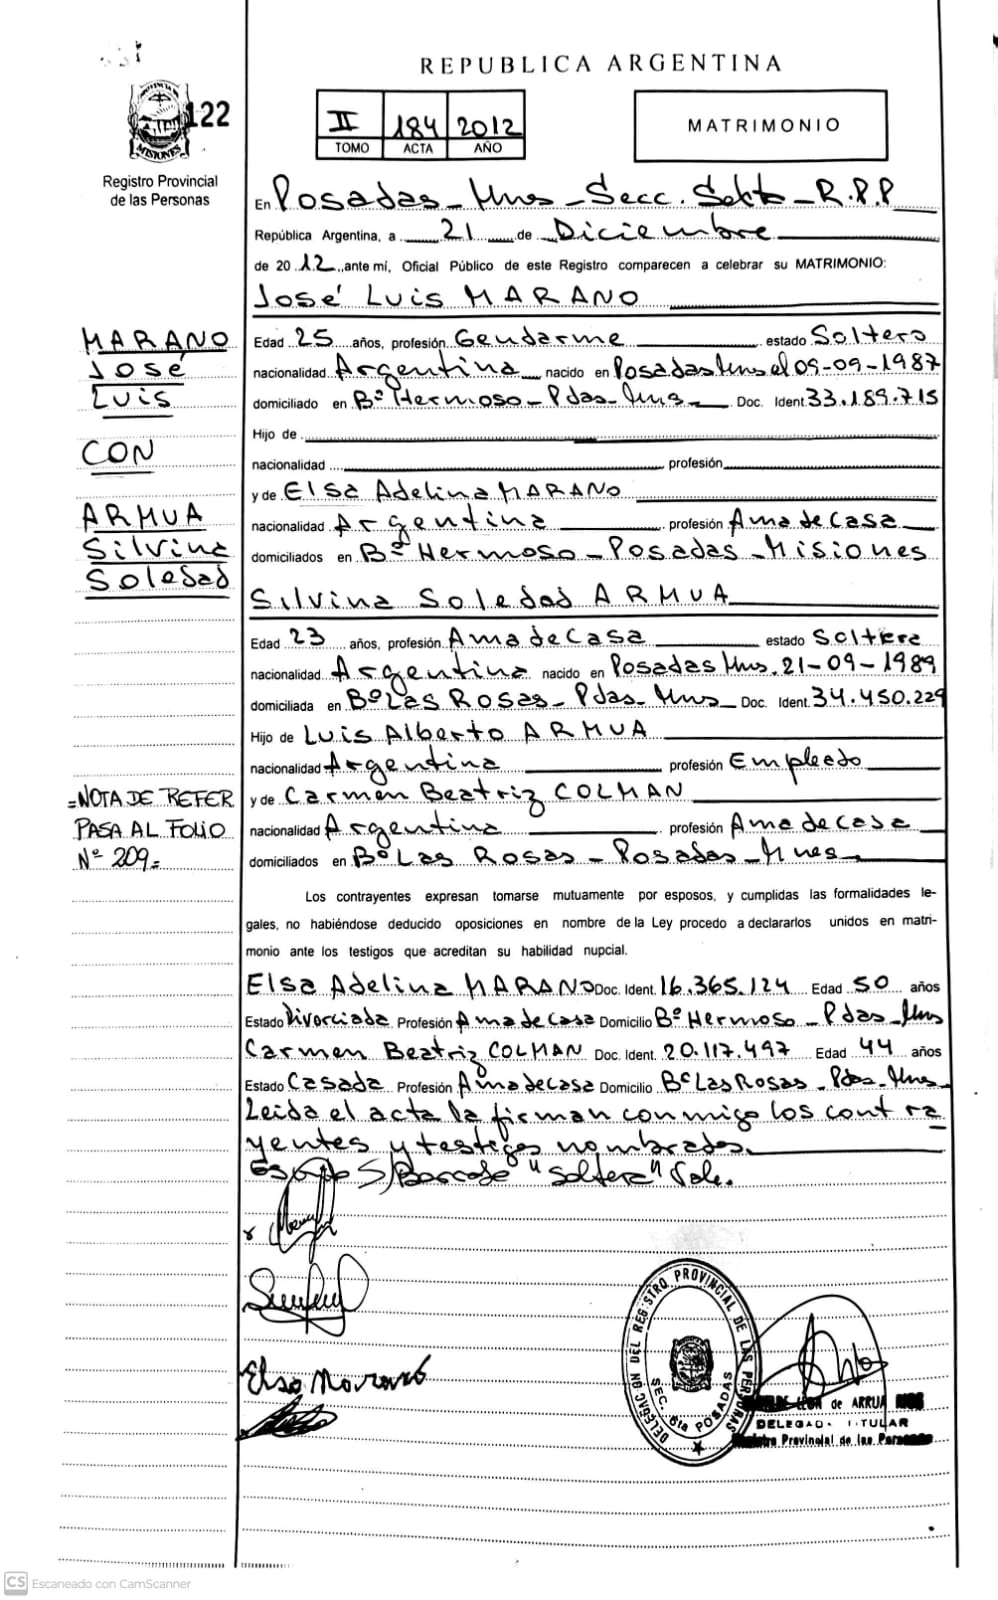 REPUBLICA ARGENTINA
122
PROVINCIA DE
MISIONES
Registro Provincial
de las Personas
II 184 2012
TOMO ACTA AÑO
MATRIMONIO
En Posadas - Mnes - Secc. Sexta - R.P.P
República Argentina, a 21 de Diciembre
de 2012, ante mí, Oficial Público de este Registro comparecen a celebrar su MATRIMONIO:
José Luis MARANO
MARANO
José
Luis
CON
ARMUA
Silvina
Soledad
Edad 25 años, profesión Gendarme estado Soltero
nacionalidad Argentina nacido en Posadas Mnes el 09-09-1987
domiciliado en Bº Hermoso - Pdas - Mns - Doc. Ident. 33.189.715
Hijo de
nacionalidad profesión
y de Elsa Adelina MARANO
nacionalidad Argentina profesión Ama de Casa
domiciliados en Bº Hermoso - Posadas - Misiones
Silvina Soledad ARMUA
Edad 23 años, profesión Ama de Casa estado Soltera
nacionalidad Argentina nacido en Posadas Mns. 21-09-1989
domiciliada en Bº Las Rosas - Pdas - Mns - Doc. Ident. 34.450.229
Hijo de Luis Alberto ARMUA
nacionalidad Argentina profesión Empleado
=NOTA DE REFER
PASA AL FOLIO
Nº 209=
y de Carmen Beatriz COLMAN
nacionalidad Argentina profesión Ama de casa
domiciliados en Bº Las Rosas - Posadas - Mnes
Los contrayentes expresan tomarse mutuamente por esposos, y cumplidas las formalidades le-
gales, no habiéndose deducido oposiciones en nombre de la Ley procedo a declararlos unidos en matri-
monio ante los testigos que acreditan su habilidad nupcial.
Elsa Adelina MARANO Doc. Ident. 16.365.124 Edad 50 años
Estado Divorciada Profesión Ama de Casa Domicilio Bº Hermoso - Pdas - Mns
Carmen Beatriz COLMAN Doc. Ident. 20.117.497 Edad 44 años
Estado Casada Profesión Ama de casa Domicilio Bº Las Rosas - Pdas - Mns -
Leida el acta la firman conmigo los contra
yentes y testigos nombrados.
S/Borrado "Soltera" Vale.
Elsa Marano
DELEGACION DEL REGISTRO PROVINCIAL DE LAS PERSONAS
SEC. 6ta POSADAS
de ARRUA
DELEGADA TITULAR
Registro Provincial de las Personas
CS Escaneado con CamScanner